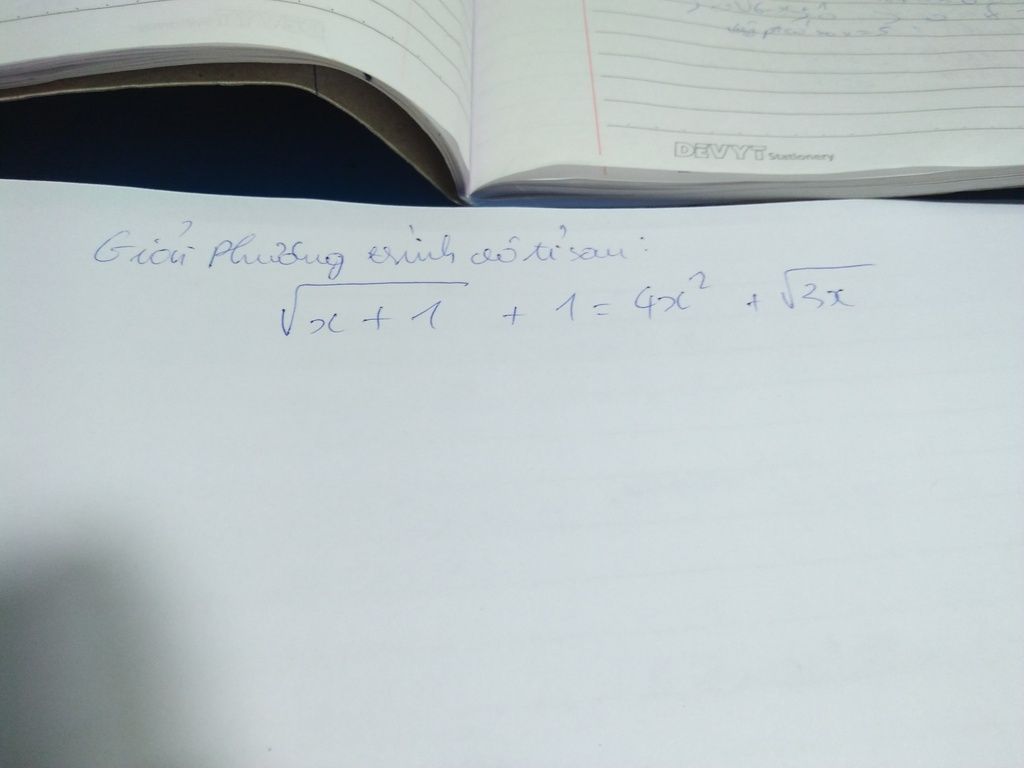 DEVYT Stationery
Giải phương trình vô tỉ sau:
√x + 1 + 1 = 4x² + √3x